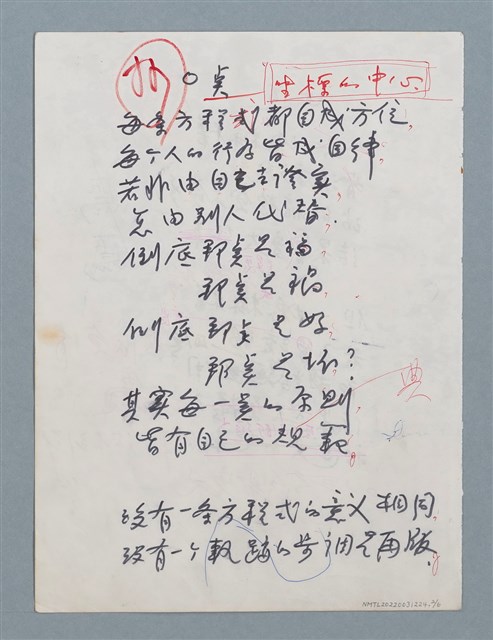 ○点 坐標的中心
每条方程式都自成方位,
每个人的行为皆成自律,
若非由自己去證实,
怎由别人代替.
倒底那点是福,
那点是禍,
倒底那点是好,
那点是坏?
其实每一点的原则,
典
皆有自己的規範。
没有一条方程式的意义相同,
没有一个軌蹟的步调是再版。
NMTL20220031224